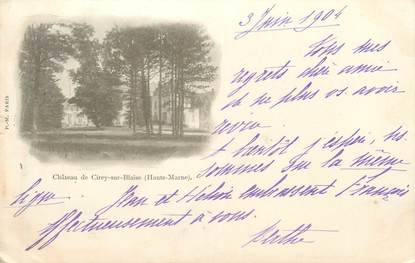 3 Juin 1904
Tous mes
regrets chère amie
de ne plus vs. avoir
avec
A bientôt j'espère, ns.
sommes sur la même
Château de Cirey-sur-Blaise (Haute-Marne).
P.-M. PARIS
ligne. Jean et Hélène embrassent François
Affectueusement à vous.
Berthe